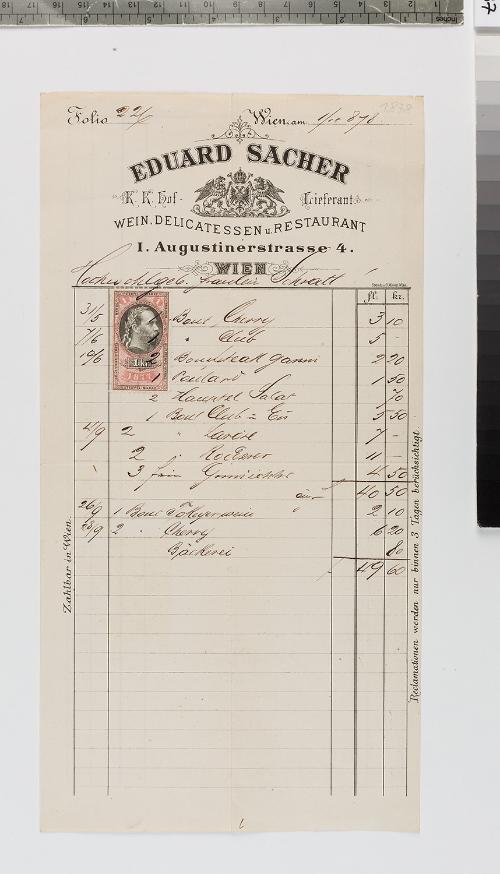 1878
Folio 22/
Wien, am 1/10 878
EDUARD SACHER
K. K. Hof-Lieferant.
WEIN, DELICATESSEN u. RESTAURANT
I. Augustinerstrasse 4.
WIEN
Hochwohlgeb. Fräulein Schratt
fl. kr.
31/5 Bout Cherry 3 10
7/6 " Club 5 -
19/6 2 2 20
1 Poulard 1 50
2 Salat 70
1 Bout Club = Eis 5 50
4/9 2 " 7 -
2 " 11 -
3 4 50
40 50
26/9 1 Bout 2 10
28/9 2 " Cherry 6 20
Bäckerei 80
49 60
1 kr.
Zahlbar in Wien.
Reclamationen werden nur binnen 3 Tagen berücksichtigt.